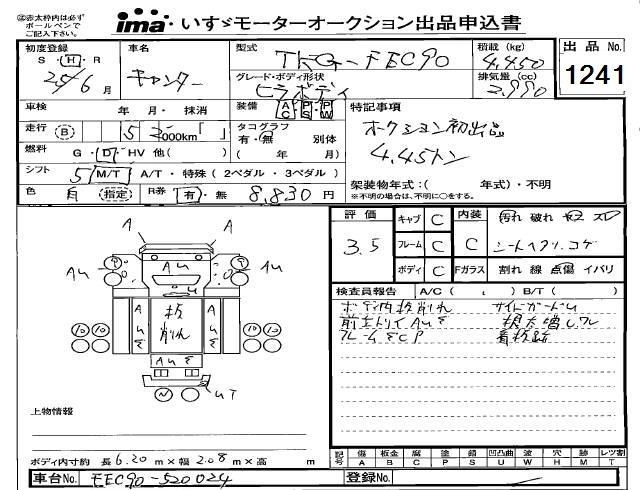 ①赤太枠内は必ず
ボールペンで
ご記入下さい。
ima いすゞモーターオークション出品申込書
初度登録 車名 型式 積載(kg) 出品No.
S H R キャンター TKG-FEC90 4,450 1241
25年6月 グレード・ボディ形状 排気量(cc)
ヒラボディ 2,990
車検 年 月・ 抹消 装備 AC PS PW 特記事項
走行 B 5 2,000km「 」 タコグラフ オークション初出品
有・無 別体 4.45トン
燃料 G・D・HV 他( ) ( 年 月)
シフト 5 M/T・A/T・特殊(2ペダル・3ペダル) 架装物年式:( 年式)・不明
色 白 (指定) R券 有・無 8,830円 ※不明の場合は、不明に○をする。
評価 キャブ C 内装 汚れ 破れ
3.5 フレーム C C シートヘタリ.コゲ
ボディ C Fガラス 割れ 線 点傷 イバリ
検査員報告 A/C( , ) B/T( )
ボデ内板削れ サイドガード
フレームSCP 看板跡
A A
AU AU
AU
板
削れ
10 10 10 10
UT
上物情報
ボディ内寸約 長 6.20 m×幅 2.08 m×高 m
記号 傷 板金 腐 塗 錆 凹凸曲 波 穴 跡 レツ割
A B C P S U W H M T
車台No. FEC90-520024 登録No.